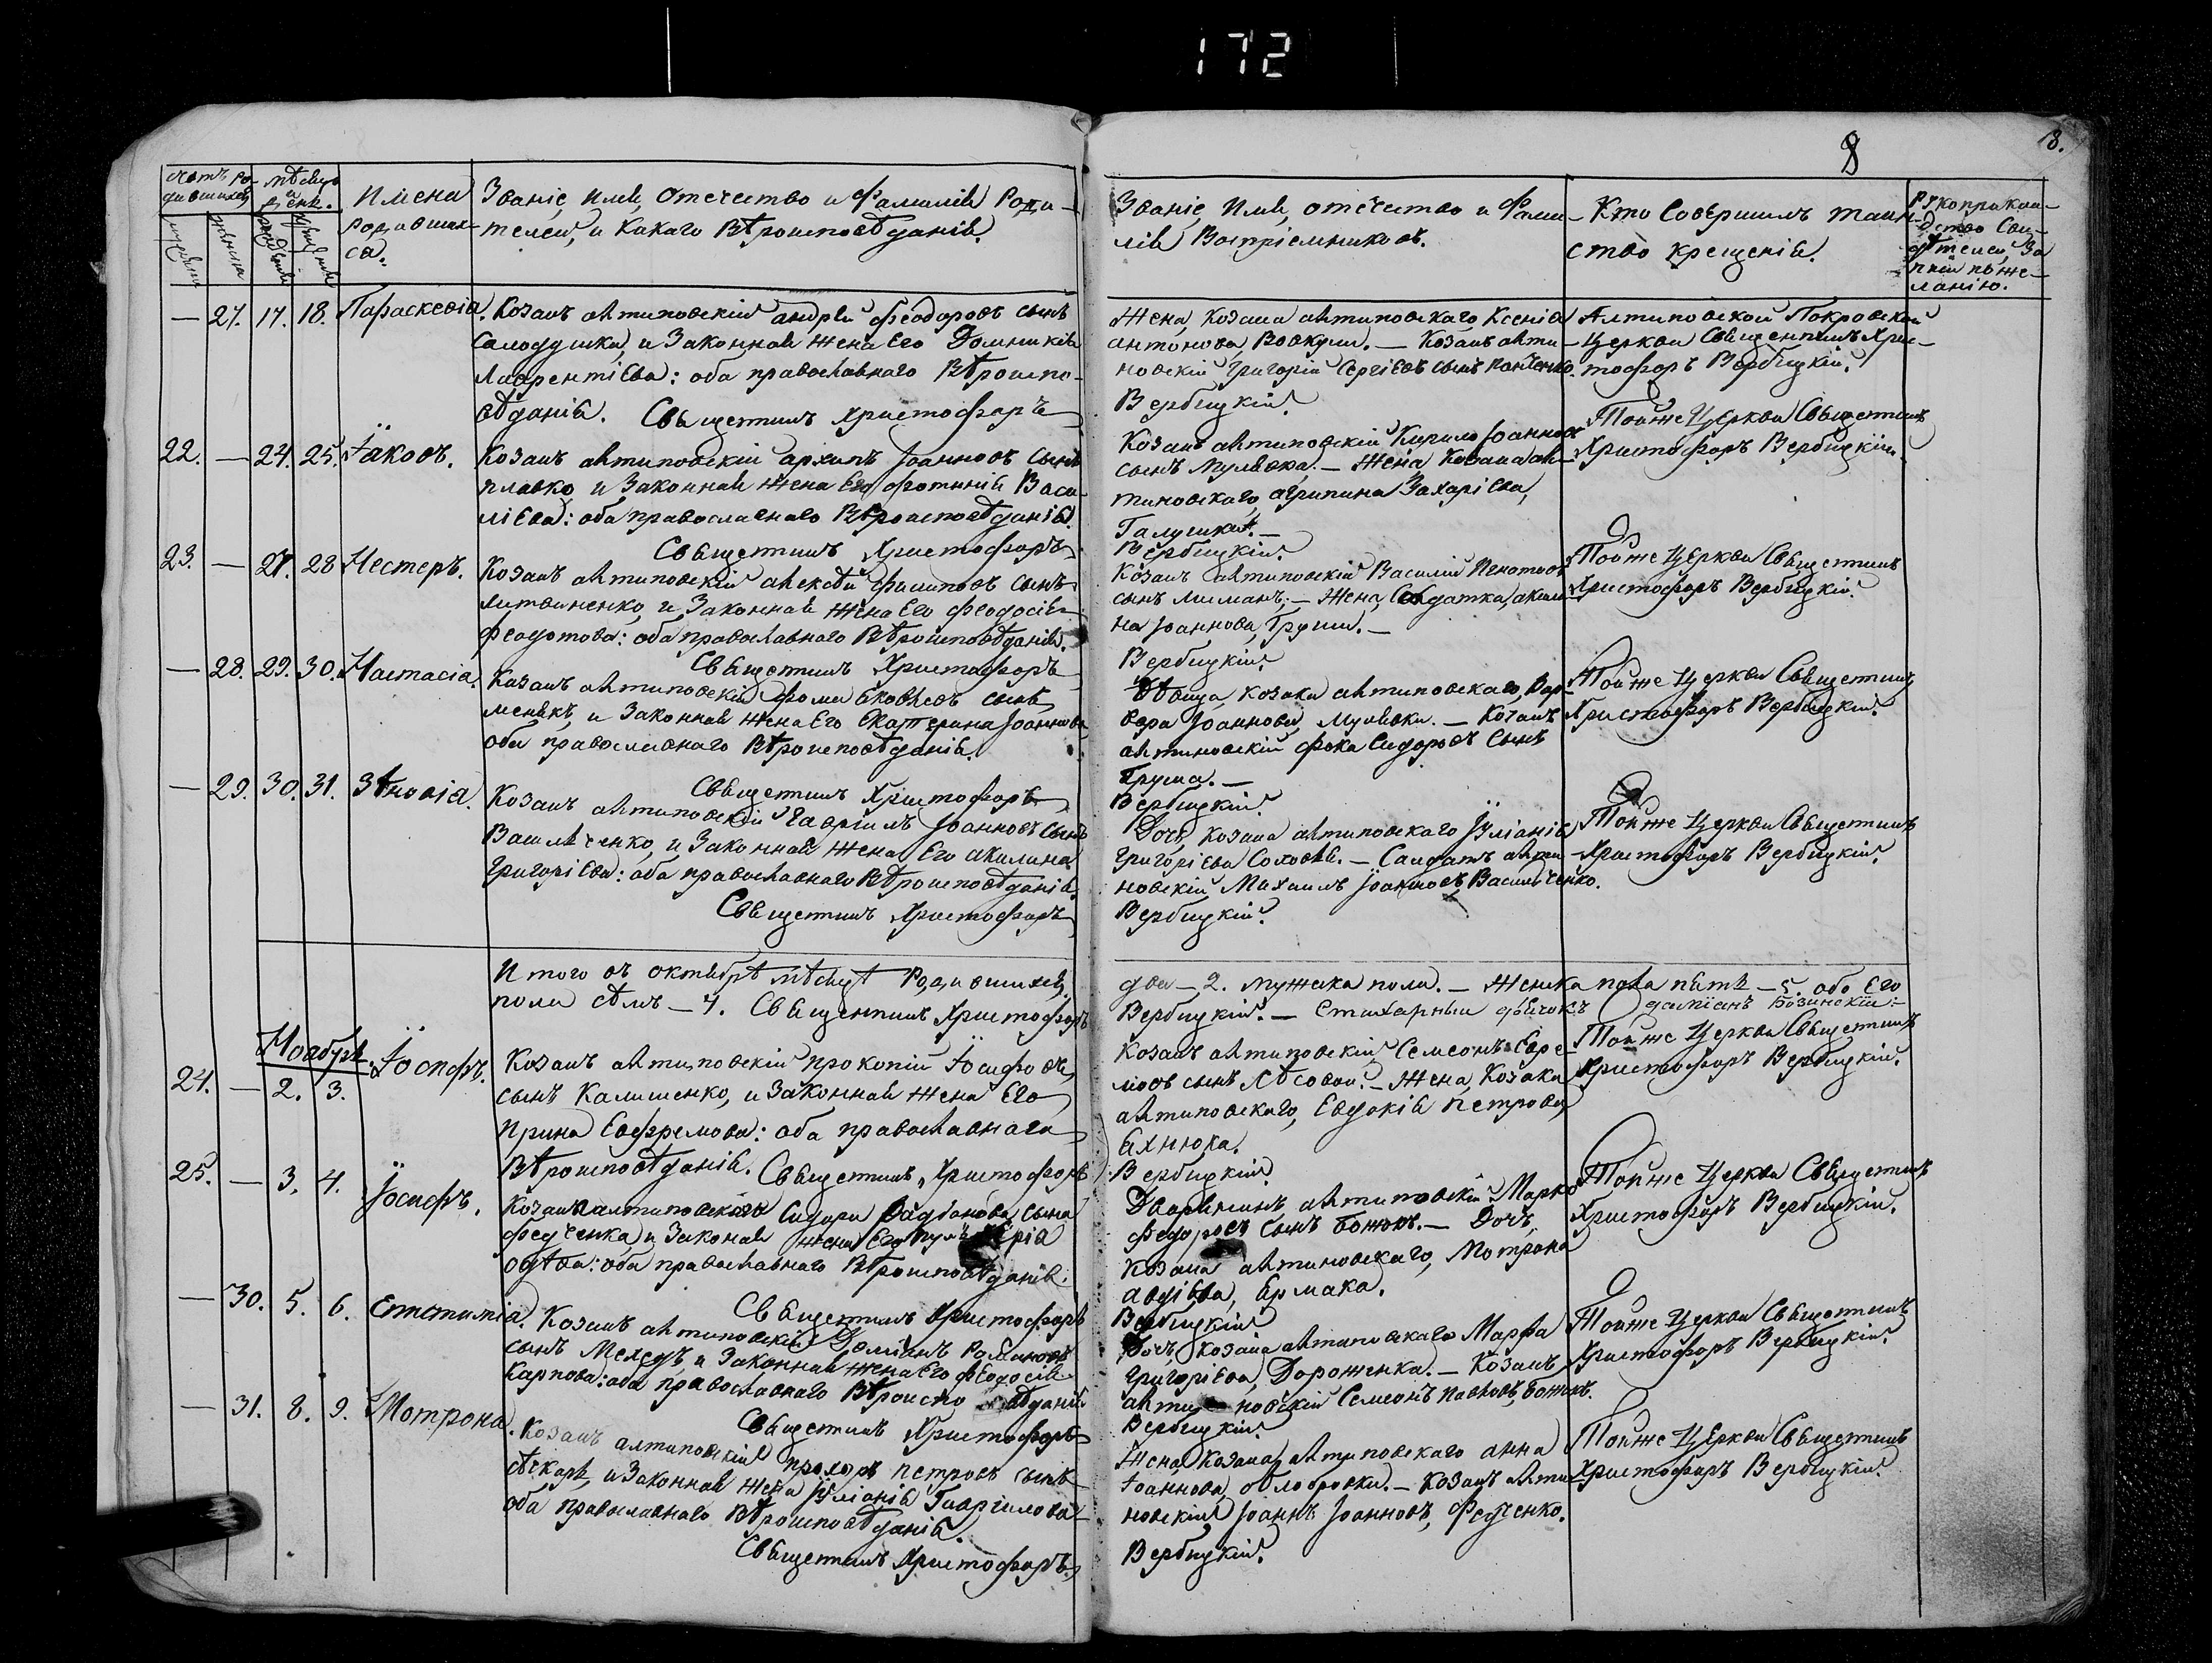 172
8
8.
Счетъ ро-
дившихся
мѣсяцъ
и
день.
Имена
родивших-
са.
Званіе, имя, Отечество и Фамилія Роди-
телей, и Какаго Вѣроисповѣданія.
Званіе, Имя, отечество и Фами-
лія Воспріемниковъ.
Кто Совершилъ таин-
ство крещенія.
Рукоприклад-
ство Сви-
дѣтелей За
писи по же-
ланію.
— 27. 17. 18. Параскевія.
Козакъ алтиновскій андрей феодоровъ сынъ
Солодушка, и Законная жена Его Домникія
Лаврентіева: оба православнаго Вѣроиспо-
вѣданія. Священникъ Христофоръ
Жена, Козака алтиновскаго Ксенія
антонова, Вовкули. — Козакъ алти-
новскій Григорій Сергіевъ сынъ панченко.
Вербицкій.
Алтиновской Покровской
Церкви Священникъ Хрис-
тофоръ Вербицкій.
22. — 24. 25. Іаковъ.
Козакъ алтиновскій архипъ Іоанновъ сынъ
плавко и Законная жена Его фотинія Васи-
лієва: оба православнаго Вѣроисповѣданія.
Священникъ Христофоръ
Козакъ алтиновскій Кирило Іоанновъ
сынъ мулявка. — Жена, Козака ал-
тиновскаго, агрипина Захаріева,
Галушка. —
Вербицкій.
Тойже Церкви Священникъ
Христофоръ Вербицкій.
23. — 27. 28 Нестеръ.
Козакъ алтиновскій алексѣй филиповъ сынъ
Литвиненко, и Законная жена Его феодосія
феодотова: оба православнаго Вѣроисповѣданія.
Священникъ Христофоръ
Козакъ алтиновскій Василій
сынъ лиманъ; — Жена, Солдатка, акили-
на Іоаннова, Груши. —
Вербицкій.
Тойже Церкви Священникъ
Христофоръ Вербицкій.
— 28. 29. 30. Настасія.
Козакъ алтиновскій фома Яковлевъ сынъ
менякъ, и Законная жена Его Екатерина Іоаннова
оба православнаго Вѣроисповѣданія.
Священникъ Христофоръ
Дѣвица, козака алтиновскаго, Вар-
вара Іоаннова, мулявки. — Козакъ
алтиновскій фока Сидоровъ Сынъ
Груша. —
Вербицкій.
Тойже Церкви Священникъ
Христофоръ Вербицкій.
— 29. 30. 31. Зѣновія.
Козакъ алтиновскій Гавріилъ Іоанновъ сынъ
Васильченко, и Законная жена Его акилина
Григоріева: оба православнаго Вѣроисповѣданія.
Священникъ Христофоръ
Дочь, козака алтиновскаго Іуліанія
Григоріева Соловѣя. — Салдатъ алти-
новскій Михаилъ Іоанновъ, Васильченко.
Вербицкій.
Тойже Церкви Священникъ
Христофоръ Вербицкій.
Итого въ октябрѣ мѣсяцѣ Родившихся
пола сѣмъ — 7. Священникъ Христофоръ
два — 2. мужска пола. — Женска пола пять — 5. обо Его
Вербицкій. — Стихарный дьячокъ даміанъ Бозинскій
Ноабрь
24. — 2. 3. Іосифъ.
Козакъ алтиновскій прокопій Іосифовъ
сынъ Калишенко, и Законная жена Его
Ирина Евфремова: оба православнаго
Вѣроисповѣданія. Священникъ Христофоръ
Козакъ алтиновскій Семеонъ Евре-
мовъ сынъ Лѣсовой. — Жена, Козака
алтиновскаго, Евдокія петрова,
Яхнюка.
Вербицкій.
Тойже Церкви Священникъ
Христофоръ Вербицкій.
25. — 3. 4. Іосифъ.
Козакъ алтиновскій Сидора Радіонова сына
федченка, и Законая жена Его
оба православнаго Вѣроисповѣданія.
Священникъ Христофоръ
Дворянинъ, алтиновскій Марко
федоровъ сынъ Божокъ. — Дочь,
козака алтиновскаго, Мотрона
авдіева, Ермака.
Вербицкій
Тойже Церкви Священникъ
Христофоръ Вербицкій.
— 30. 5. 6. Епистимія.
Козакъ алтиновскій Деміанъ Романовъ
сынъ Мехедъ, и Законная жена Его феодосія
Карпова: оба православнаго Вѣроиспо вѣданія
Священникъ Христофоръ
Дочь, козака алтиновскаго Марфа
Григоріева, Дороженка. — Козакъ
алтиновскій Семеонъ павловъ, Божокъ.
Вербицкій.
Тойже Церкви Священникъ
Христофоръ Вербицкій.
— 31. 8. 9. Мотрона.
Козакъ алтиновскій прохоръ петровъ сынъ
сѣкарь, и Законная жена Іуліанія Гавріилова
оба православнаго Вѣроисповѣданія.
Священникъ Христофоръ
Жена, козака, алтиновскаго анна
Іоаннова, облобровки. — Козакъ алти-
новскій, Іоаннъ Іоанновъ, Федченко.
Вербицкій.
Тойже Церкви Священникъ
Христофоръ Вербицкій.